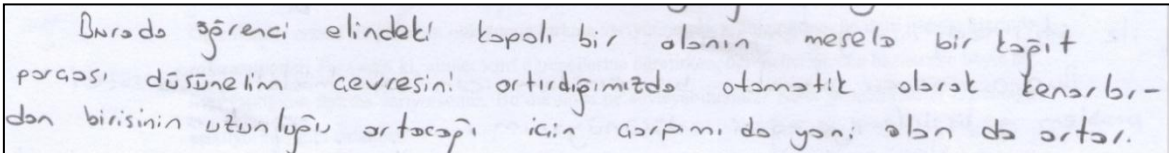 Burada öğrenci elindeki kapalı bir alanın mesela bir kağıt
parçası düşünelim çevresini artırdığımızda otomatik olarak kenarlar-
dan birisinin uzunluğu artacağı için çarpımı da yani alan da artar.